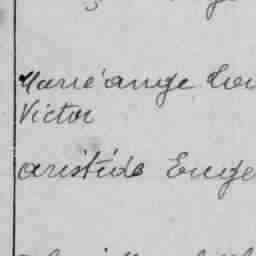 Marie ange Lou
Victor
aristide Euge